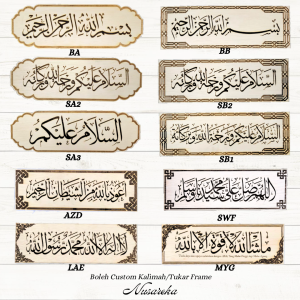 بسم الله الرحمن الرحيم
بسم الله الرحمن الرحيم
BA
BB
السلام عليكم ورحمة الله وبركاته
السلام عليكم ورحمة الله وبركاته
SA2
SB2
السلام عليكم
السلام عليكم ورحمة الله وبركاته
SA3
SB1
أعوذ بالله من الشيطان الرجيم
اللهم صل على سيدنا محمد
AZD
SWF
لا إله إلا الله محمد رسول الله
ما شاء الله لا قوة إلا بالله
LAE
MYG
Boleh Custom Kalimah/Tukar Frame
Nusareka